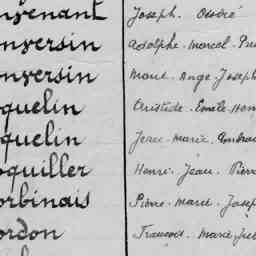 nvenant Joseph. Désiré
nversin Adolphe. Marcel.
nversin Marie. Ange. Joseph
quelin Aristide. Emile. Hen
quelin Jean. Marie.
quiller Henri. Jean. Pierr
orbinais Pierre. Marie. Josep
ordon François. Marie.